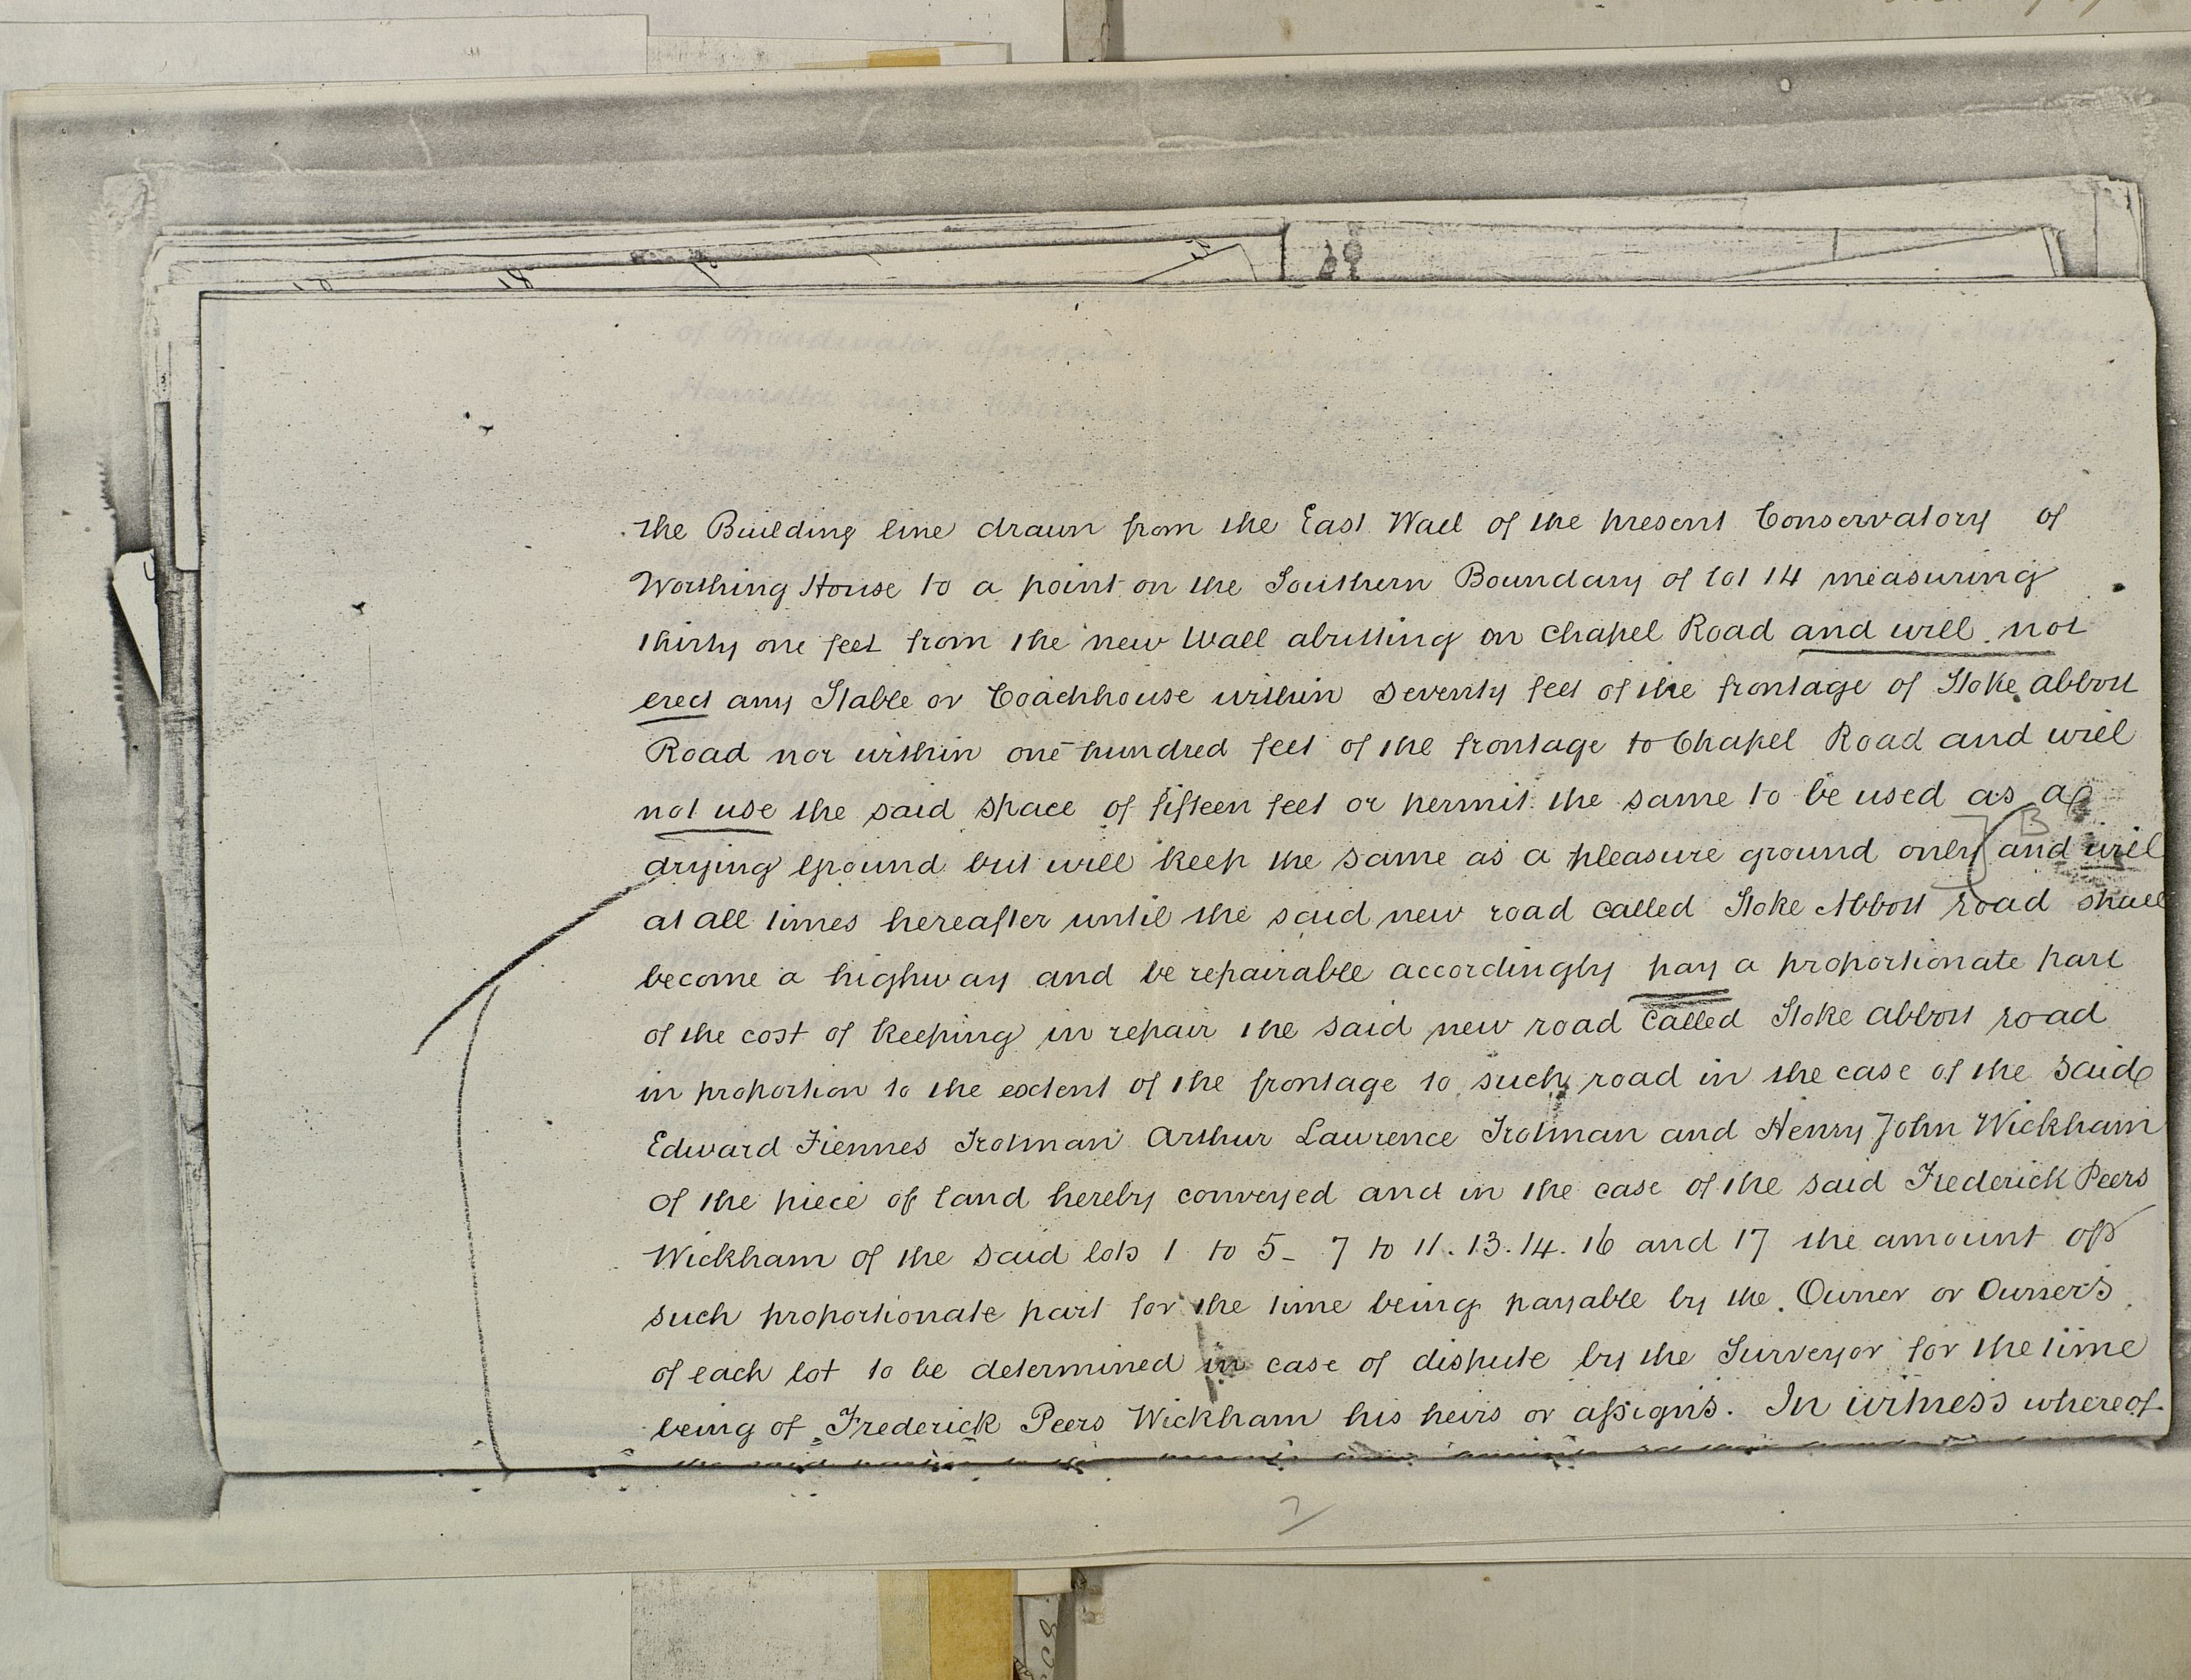 the Building line drawn from the East Wall of the present Conservatory of
Worthing House to a point on the Southern Boundary of lot 14 measuring
thirty one feet from the new Wall abutting on Chapel Road and will not
erect any Stable or Coachhouse within Seventy feet of the frontage of Stoke abbott
Road nor within one hundred feet of the frontage to Chapel Road and will
not use the said space of fifteen feet or permit the same to be used as a
drying ground but will keep the same as a pleasure ground only and will
B
at all times hereafter until the said new road called Stoke Abbott road shall
become a highway and be repairable accordingly pay a proportionate part
of the cost of keeping in repair the said new road called Stoke abbott road
in proportion to the extent of the frontage to such road in the case of the said
Edward Fiennes Trotman Arthur Lawrence Trotman and Henry John Wickham
of the piece of land hereby conveyed and in the case of the said Frederick Peers
Wickham of the said lots 1 to 5 - 7 to 11. 13. 14. 16 and 17 the amount of
such proportionate part for the time being payable by the Owner or Owners
of each lot to be determined in case of dispute by the Surveyor for the time
being of Frederick Peers Wickham his heirs or assigns. In witness whereof
2